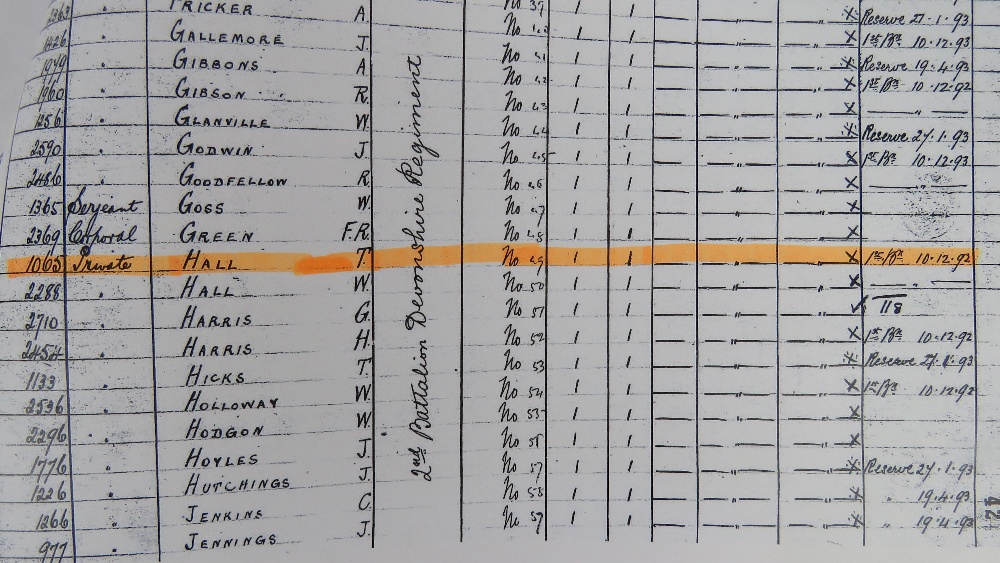 TRICKER A. No 39 1 1 — „ — „ X Reserve 27.1.93
1426 „ GALLEMORE J. No 40 1 1 — „ — „ X 1st Bn 10.12.93
1949 „ GIBBONS A No 41 1 1 — „ — „ X Reserve 19.4.93
1960 „ GIBSON R. No 42 1 1 — „ — „ X 1st Bn 10.12.92
1256 „ GLANVILLE W. No 43 1 1 — „ — „ X — „ —
2590 „ GODWIN J. No 44 1 1 — „ — „ X Reserve 27.1.93
2486 „ GOODFELLOW R. No 45 1 1 — „ — „ X 1st Bn 10.12.93
1365 Serjeant GOSS W. No 46 1 1 — „ — „ X — „ —
2369 Corporal GREEN F.R. No 47 1 1 — „ — „ X
No 48 1 1 — „ — „ X
1005 Private HALL T. No 49 1 1 — „ — „ X 1st Bn 10.12.92
2288 „ HALL W. No 50 1 1 — „ — „ X — „ —
2710 „ HARRIS G. No 51 1 1 — „ — „ 118
2454 „ HARRIS H. No 52 1 1 — „ — „ X 1st Bn 10.12.92
1133 „ HICKS T. No 53 1 1 — „ — „ X Reserve 27.1.93
2536 „ HOLLOWAY W. No 54 1 1 — „ — „ X 1st Bn 10.12.92
2296 „ HODGON W. No 55 1 1 — „ — „ X
1776 „ HOYLES J. No 56 1 1 — „ — „ X
1226 „ HUTCHINGS J. No 57 1 1 — „ — „ X Reserve 27.1.93
1266 „ JENKINS C. No 58 1 1 — „ — „ X „ 19.4.93
977 „ JENNINGS J. No 59 1 1 — „ — „ X „ 19.4.93
2nd Battalion Devonshire Regiment
42